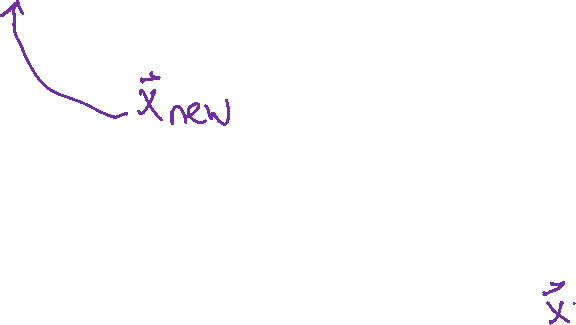 x⃗new
x⃗